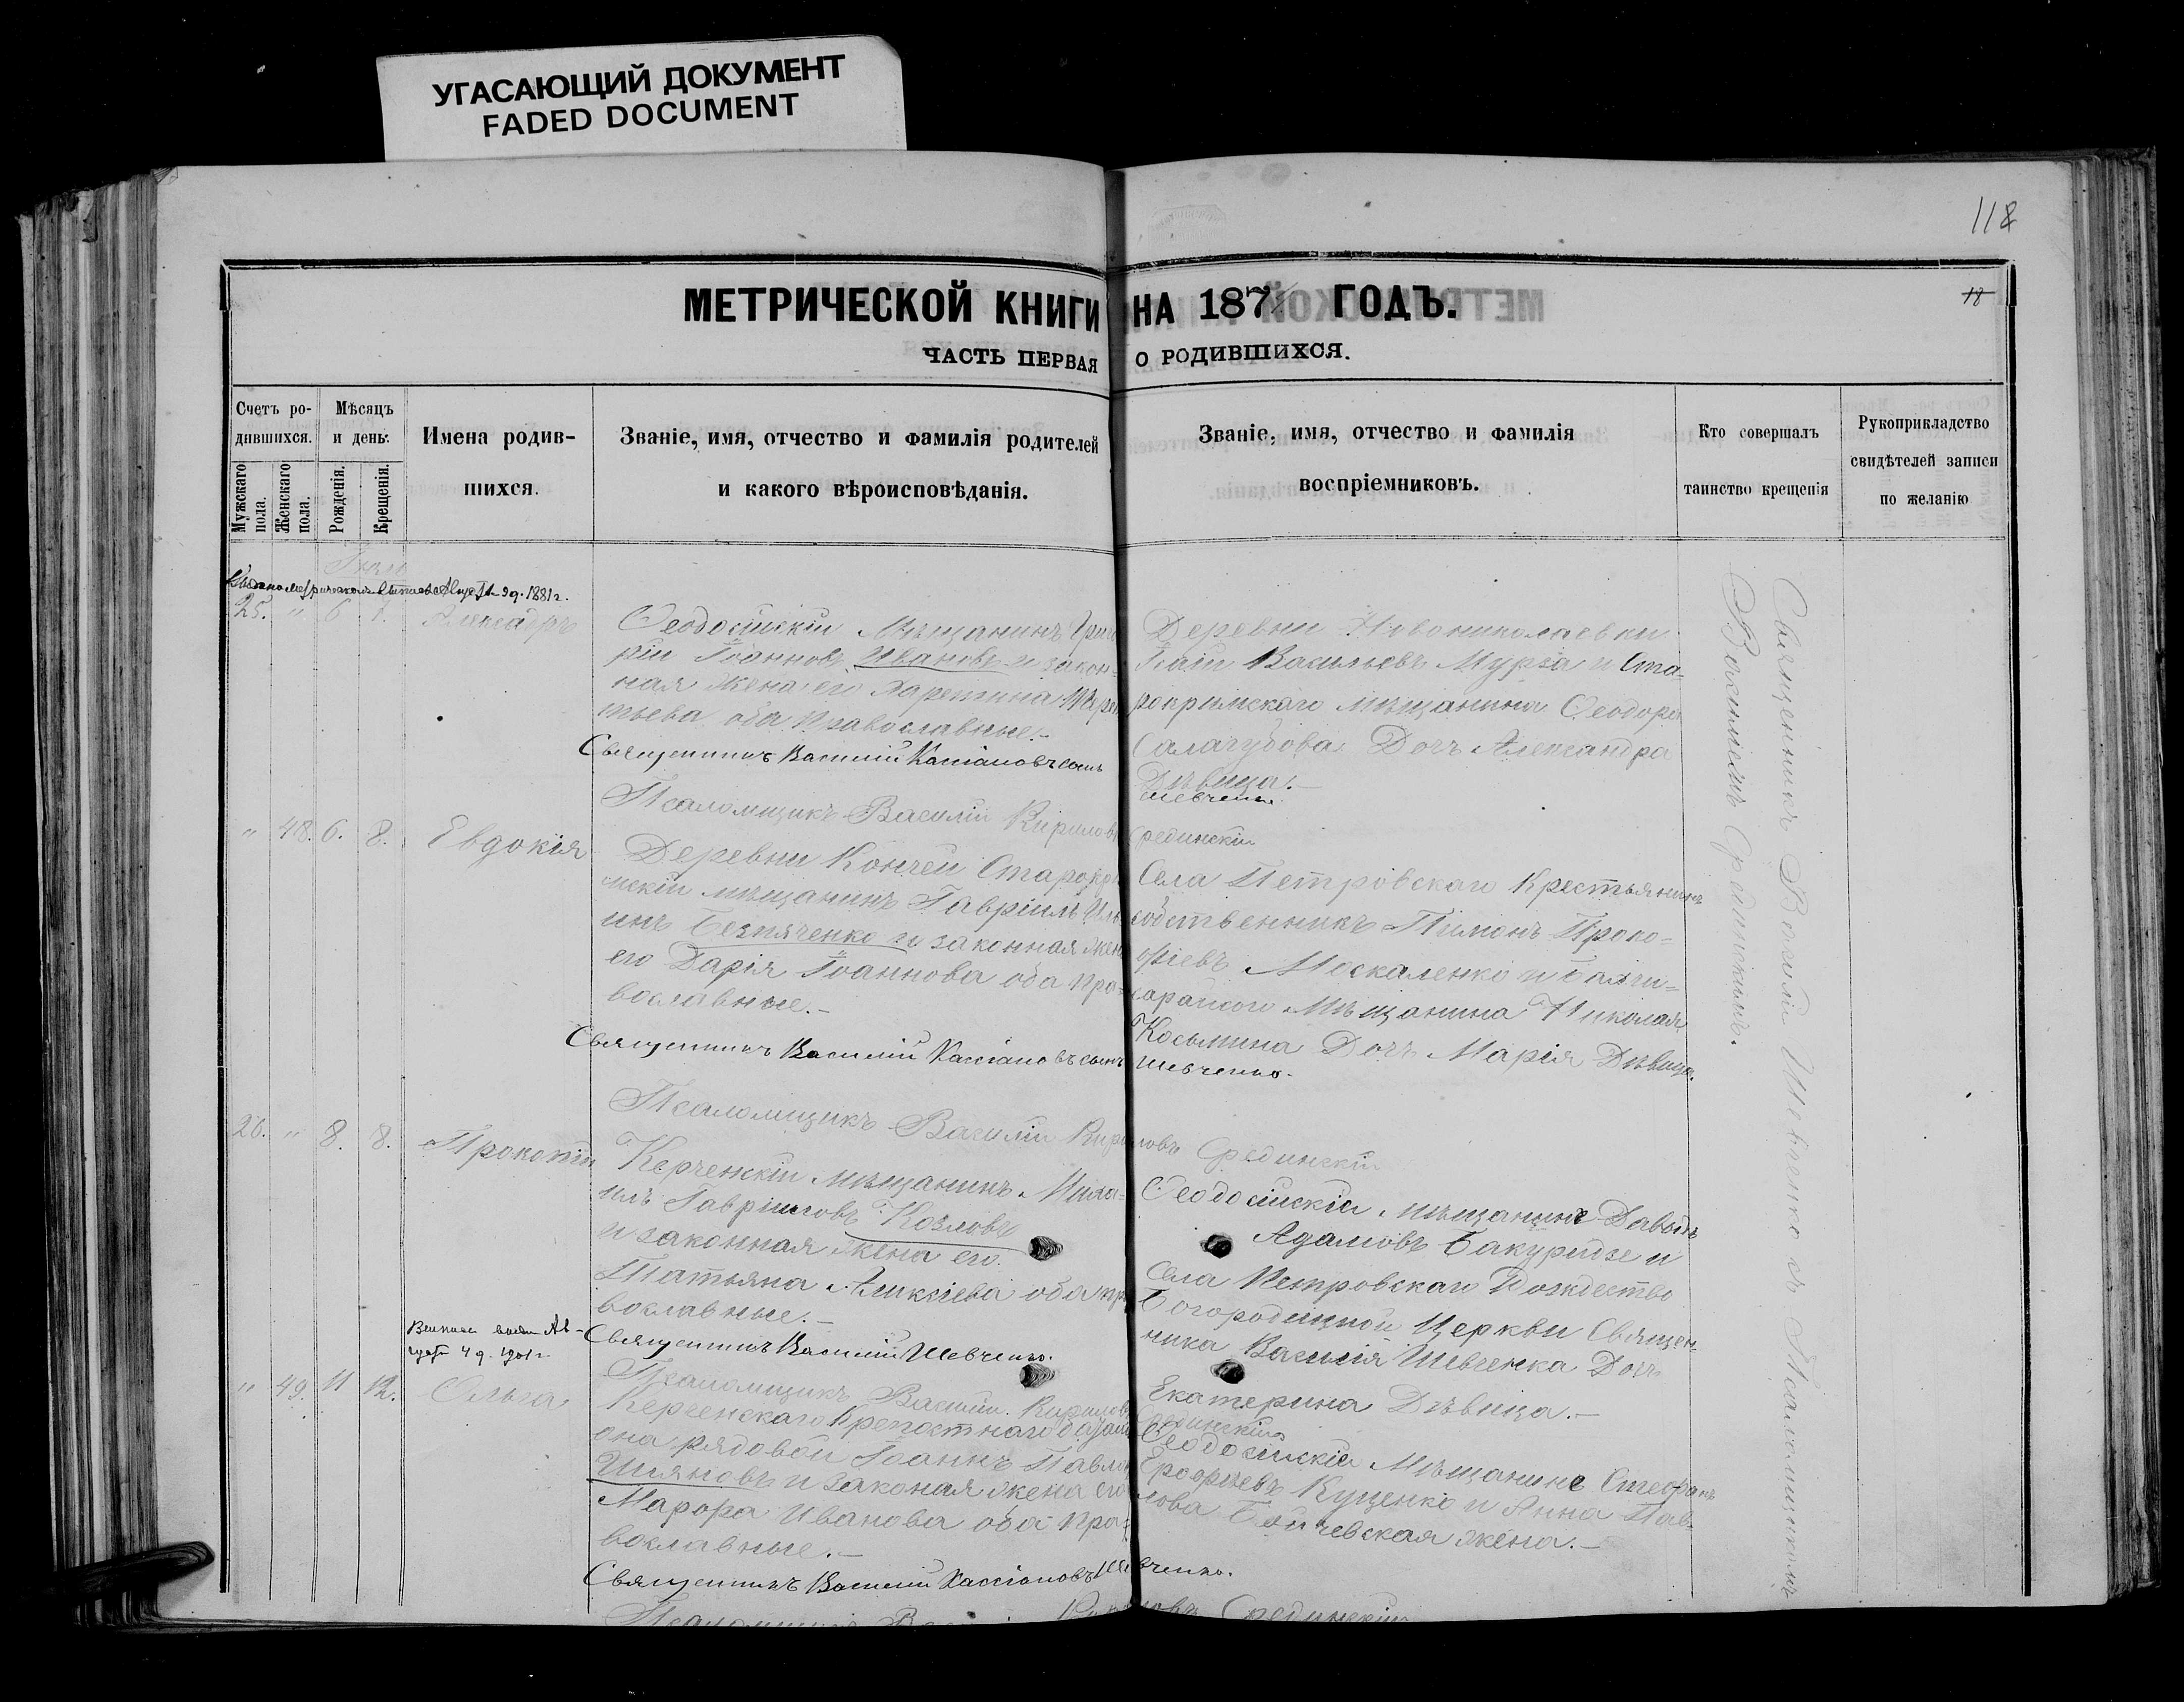 УГАСАЮЩИЙ ДОКУМЕНТ
FADED DOCUMENT
118
18
МЕТРИЧЕСКОЙ КНИГИ НА 187 ГОДЪ.
ЧАСТЬ ПЕРВАЯ О РОДИВШИХСЯ.
Счетъ ро-
дившихся.
Мужскаго пола.
Женскаго пола.
Мѣсяцъ
и день.
Рожденія.
Крещенія.
Имена родив-
шихся.
Званіе, имя, отчество и фамилія родителей
и какого вѣроисповѣданія.
Званіе, имя, отчество и фамилія
воспріемниковъ.
Кто совершалъ
таинство крещенія
Рукоприкладство
свидѣтелей записи
по желанію
9 д. 1881 г.
25. " 6 7. Александръ
Ѳеодосійскій Мѣщанинъ Григо
рій Іоанновъ Ивановъ и закон-
ная жена его
тьева оба православные.-
Священникъ Василій Кассіановъ сынъ
Шевченко.
Псаломщикъ Василій Кириловъ Срединскій
Деревни Новониколаевки
Васильевъ Мурза и Ста-
рокрымскаго мѣщанина Ѳеодора
Дочь Александра
Дѣвица.-
" 48. 6. 8. Евдокія
Деревни Кончеи Старокры
мскій мѣщанинъ Гавріилъ Иль
инъ Безпяченко и законная жена
его Дарія Іоаннова оба пра-
вославные.-
Священникъ Василій Кассіановъ сынъ Шевченко.
Псаломщикъ Василій Кириловъ Срединскій
Села Петровскаго Крестьянинъ
собственникъ Пимонъ Проко-
фіевъ Москаленко и Бахчи-
сарайскаго Мѣщанина Николая
Косьмина Дочь Марія Дѣвица.
26. " 8. 8. Прокопій
Керченскій Мѣщанинъ Миха-
илъ Гавріиловъ Козловъ
и законная жена его
Татьяна Алексіева оба пра
вославные.-
Священникъ Василій Шевченко.
Псаломщикъ Василій Кириловъ Срединскій
Ѳеодосійскій мѣщанинъ Давыдъ
Адамовъ Бакуридзе и
Села Петровскаго Рождество
Богородичной Церкви Священ-
ника Василія Шевченка Дочь
Екатерина Дѣвица.-
4 д. 1901 г.
" 49. 11 12. Ольга
Керченскаго Крепостнаго баталі
она рядовой Іоаннъ Павло
и законая жена его
Мавра Иванова оба пра-
вославные.-
Священникъ Василій Кассіановъ Шевченко.
Псаломщикъ Василій Кириловъ Срединскій
Ѳеодосійскій Мѣщанинъ Стефанъ
Ерофѣевъ Куценко и Анна Пав-
лова жена.-
Священникъ Василій Шевченко съ Псаломщикомъ
Василіемъ Срединскимъ.